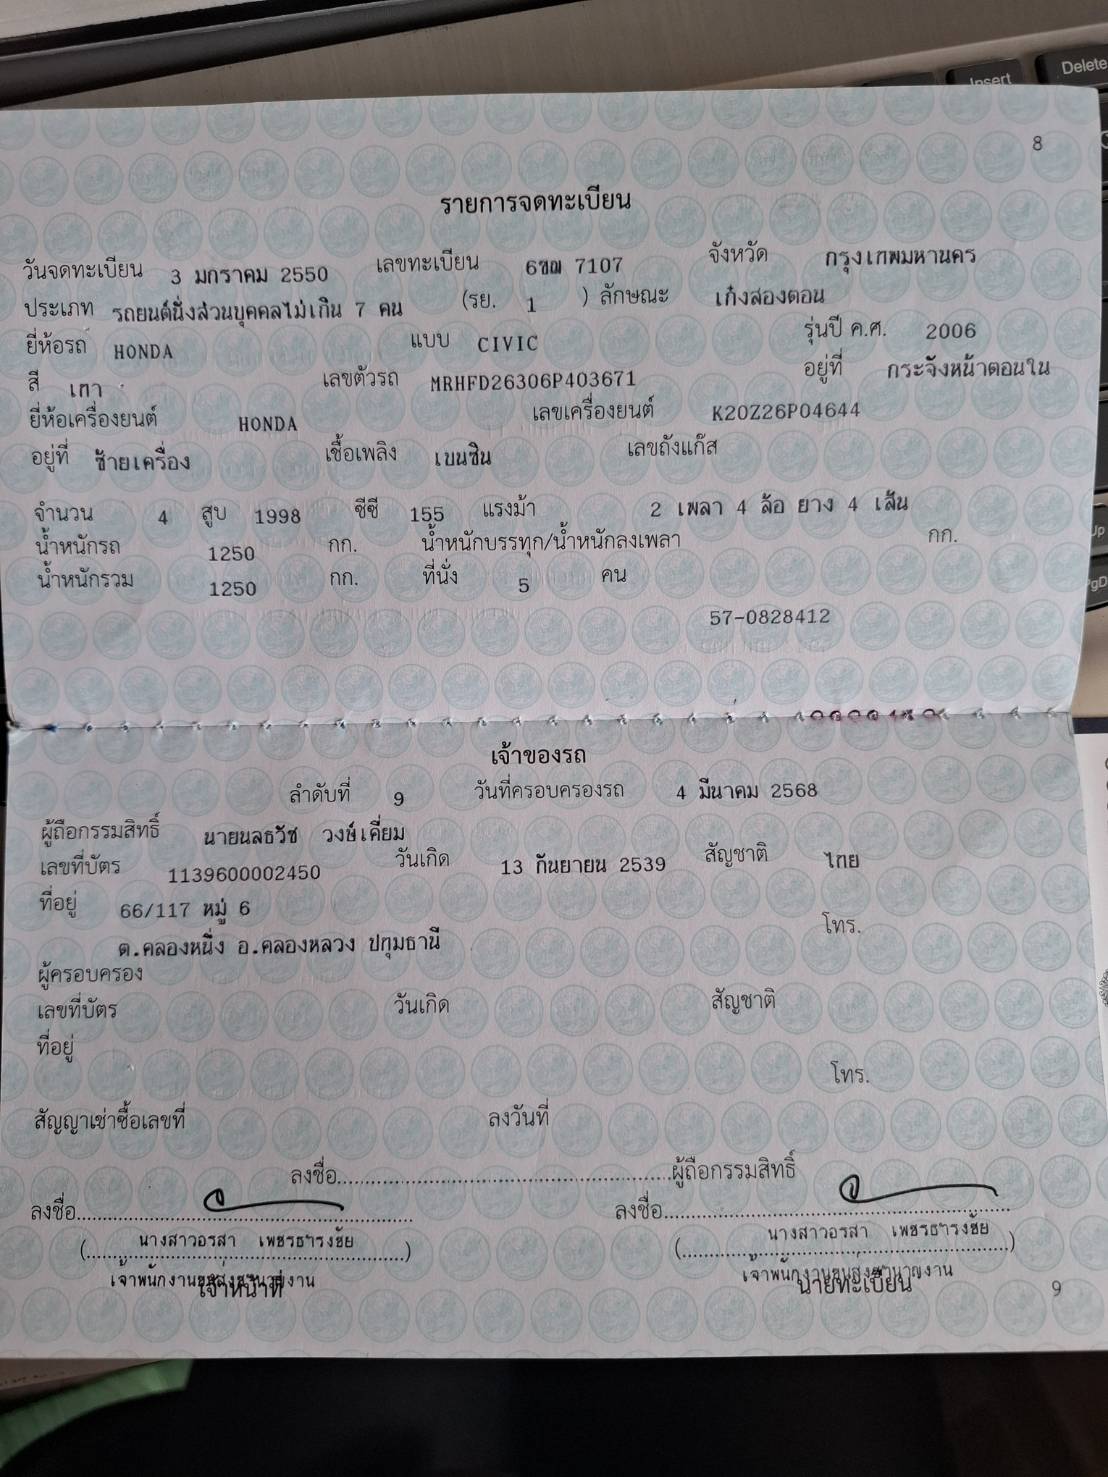 Insert
Delete
8
รายการจดทะเบียน
วันจดทะเบียน 3 มกราคม 2550 เลขทะเบียน 6ขฌ 7107 จังหวัด กรุงเทพมหานคร
ประเภท รถยนต์นั่งส่วนบุคคลไม่เกิน 7 คน (รย. 1 ) ลักษณะ เก๋งสองตอน
ยี่ห้อรถ HONDA แบบ CIVIC รุ่นปี ค.ศ. 2006
สี เทา เลขตัวรถ MRHFD26306P403671 อยู่ที่ กระจังหน้าตอนใน
ยี่ห้อเครื่องยนต์ HONDA เลขเครื่องยนต์ K20Z26P04644
อยู่ที่ ซ้ายเครื่อง เชื้อเพลิง เบนซิน เลขถังแก๊ส
จำนวน 4 สูบ 1998 ซีซี 155 แรงม้า 2 เพลา 4 ล้อ ยาง 4 เส้น
น้ำหนักรถ 1250 กก. น้ำหนักบรรทุก/น้ำหนักลงเพลา กก.
น้ำหนักรวม 1250 กก. ที่นั่ง 5 คน
57-0828412
เจ้าของรถ
ลำดับที่ 9 วันที่ครอบครองรถ 4 มีนาคม 2568
ผู้ถือกรรมสิทธิ์ นายนลธวัช วงษ์เคี่ยม
เลขที่บัตร 1139600002450 วันเกิด 13 กันยายน 2539 สัญชาติ ไทย
ที่อยู่ 66/117 หมู่ 6 โทร.
ต.คลองหนึ่ง อ.คลองหลวง ปทุมธานี
ผู้ครอบครอง
เลขที่บัตร วันเกิด สัญชาติ
ที่อยู่
โทร.
สัญญาเช่าซื้อเลขที่ ลงวันที่
ลงชื่อ ผู้ถือกรรมสิทธิ์
ลงชื่อ ลงชื่อ
(นางสาวอรสา เพชรธำรงชัย) (นางสาวอรสา เพชรธำรงชัย)
เจ้าพนักงานขนส่งชำนาญงาน เจ้าพนักงานขนส่งชำนาญงาน
เจ้าหน้าที่ นายทะเบียน
9